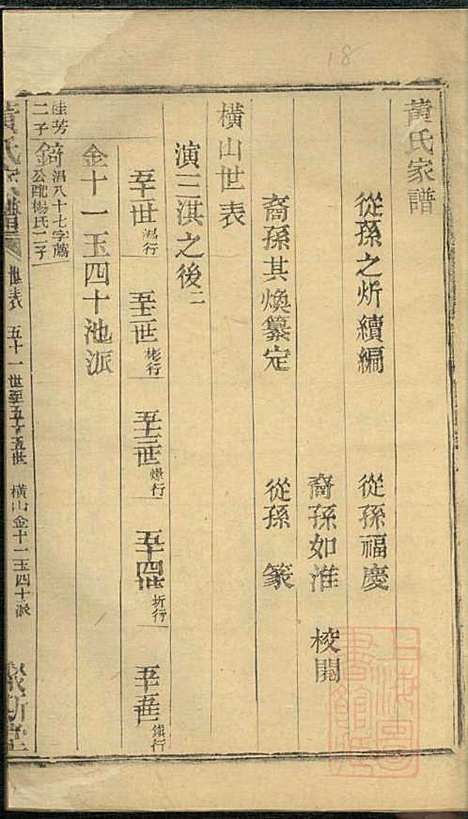 18
黄氏家譜
從孫之炘續編 從孫福慶
裔孫如淮 校閱
裔孫其煥纂定 從孫 篆
橫山世表
演三淇之後二
五十一世 五十二世彬行 五十三世 五十四世析行 五十五世
金十一玉四十池派
桂芳二子 錡 八十七字 公配楊氏二子
世表 五十一世至五十五世 橫山金十一玉四十派
上海圖書館藏